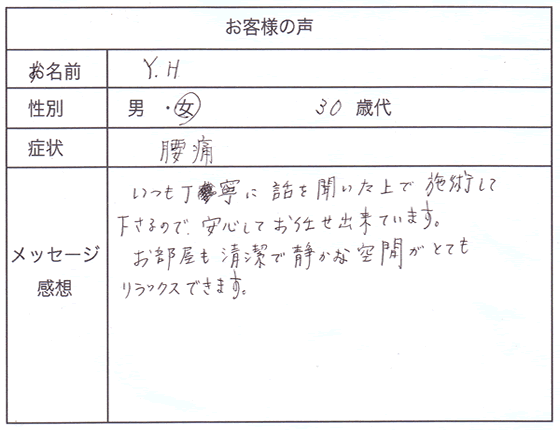 お客様の声
お名前 Y.H
性別 男・女 30歳代
症状 腰痛
メッセージ
感想
いつも丁寧に話を聞いた上で施術して
下さるので、安心してお任せ出来ています。
お部屋も清潔で静かな空間がとても
リラックスできます。